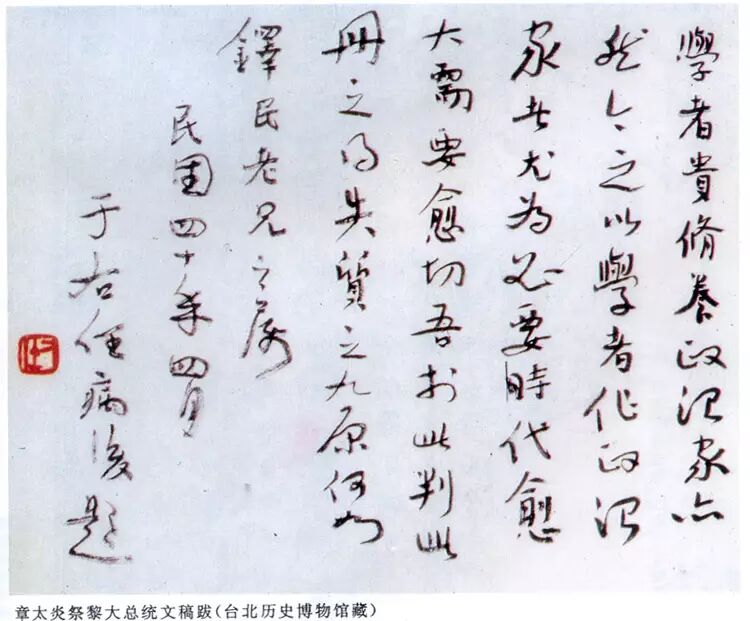 學者貴脩養政治家亦
然今之以學者作政治
家者尤為必要時代愈
大需要愈切吾於此判此
冊之得失質之九原何如
鐸民老兄之属
民國四十年四月
于右任病後題
章太炎祭黎大总统文稿跋(台北历史博物馆藏)